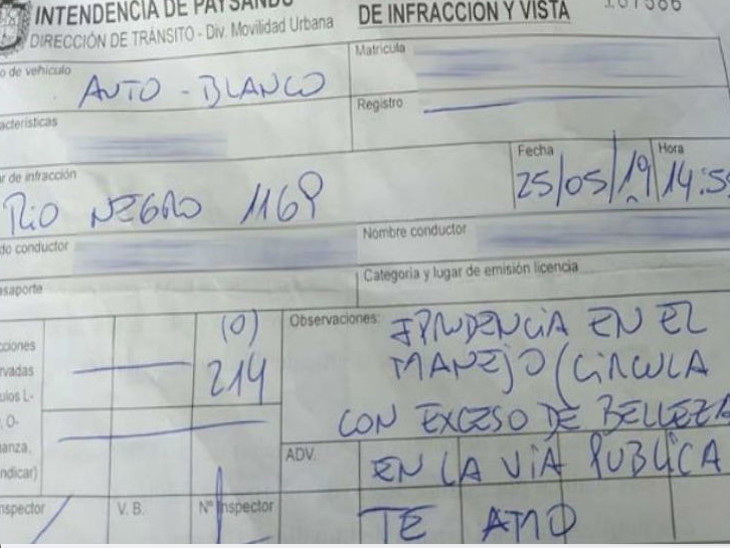 INTENDENCIA DE PAYSANDU
DE INFRACCION Y VISTA
DIRECCIÓN DE TRÁNSITO - Div. Movilidad Urbana
o de vehículo
AUTO - BLANCO
Matricula
Registro
acteristicas
r de infracción
RIO NEGRO 1169
Fecha
25/05/19
Hora
14:55
do conductor
Nombre conductor
saporte
Categoria y lugar de emisión licencia
cciones
rvadas
ulos L-
. O-
anza,
ndicar)
(0)
214
Observaciones:
IPRUDENCIA EN EL
MANEJO (CIRCULA
CON EXCESO DE BELLEZA
ADV.
EN LA VIA PUBLICA
TE AMO
nspector
V. B.
Nº Inspector